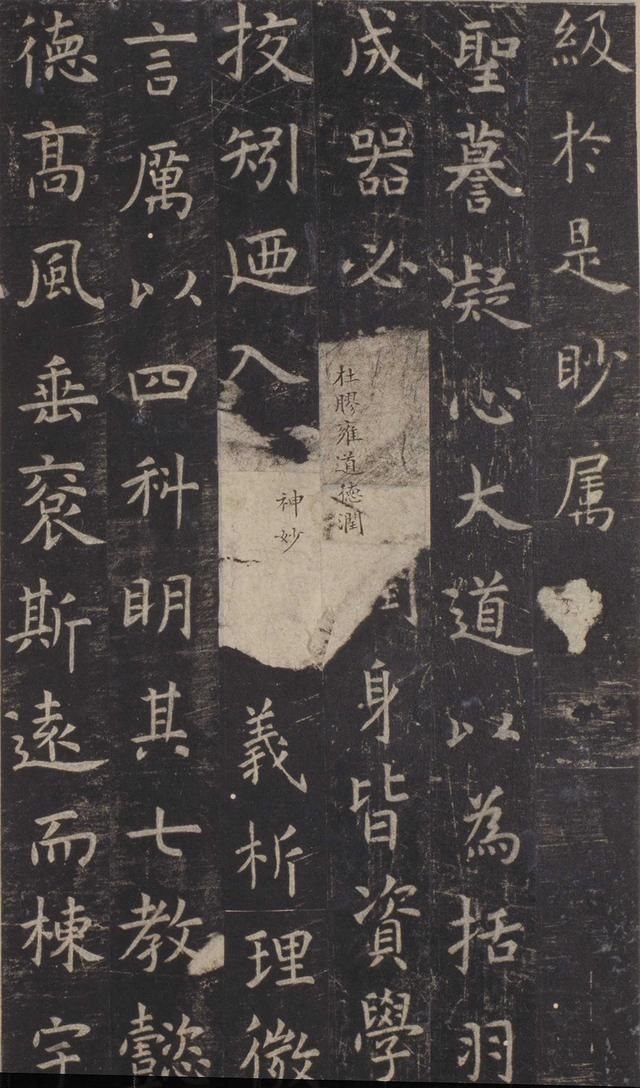 級於是眇属
聖謩凝心大道以為括羽
成器必杜膠雍道德潤身皆資學
挍矧廼入神妙義析理微
言厲以四科明其七教懿
德髙風垂裕斯遠而棟宇